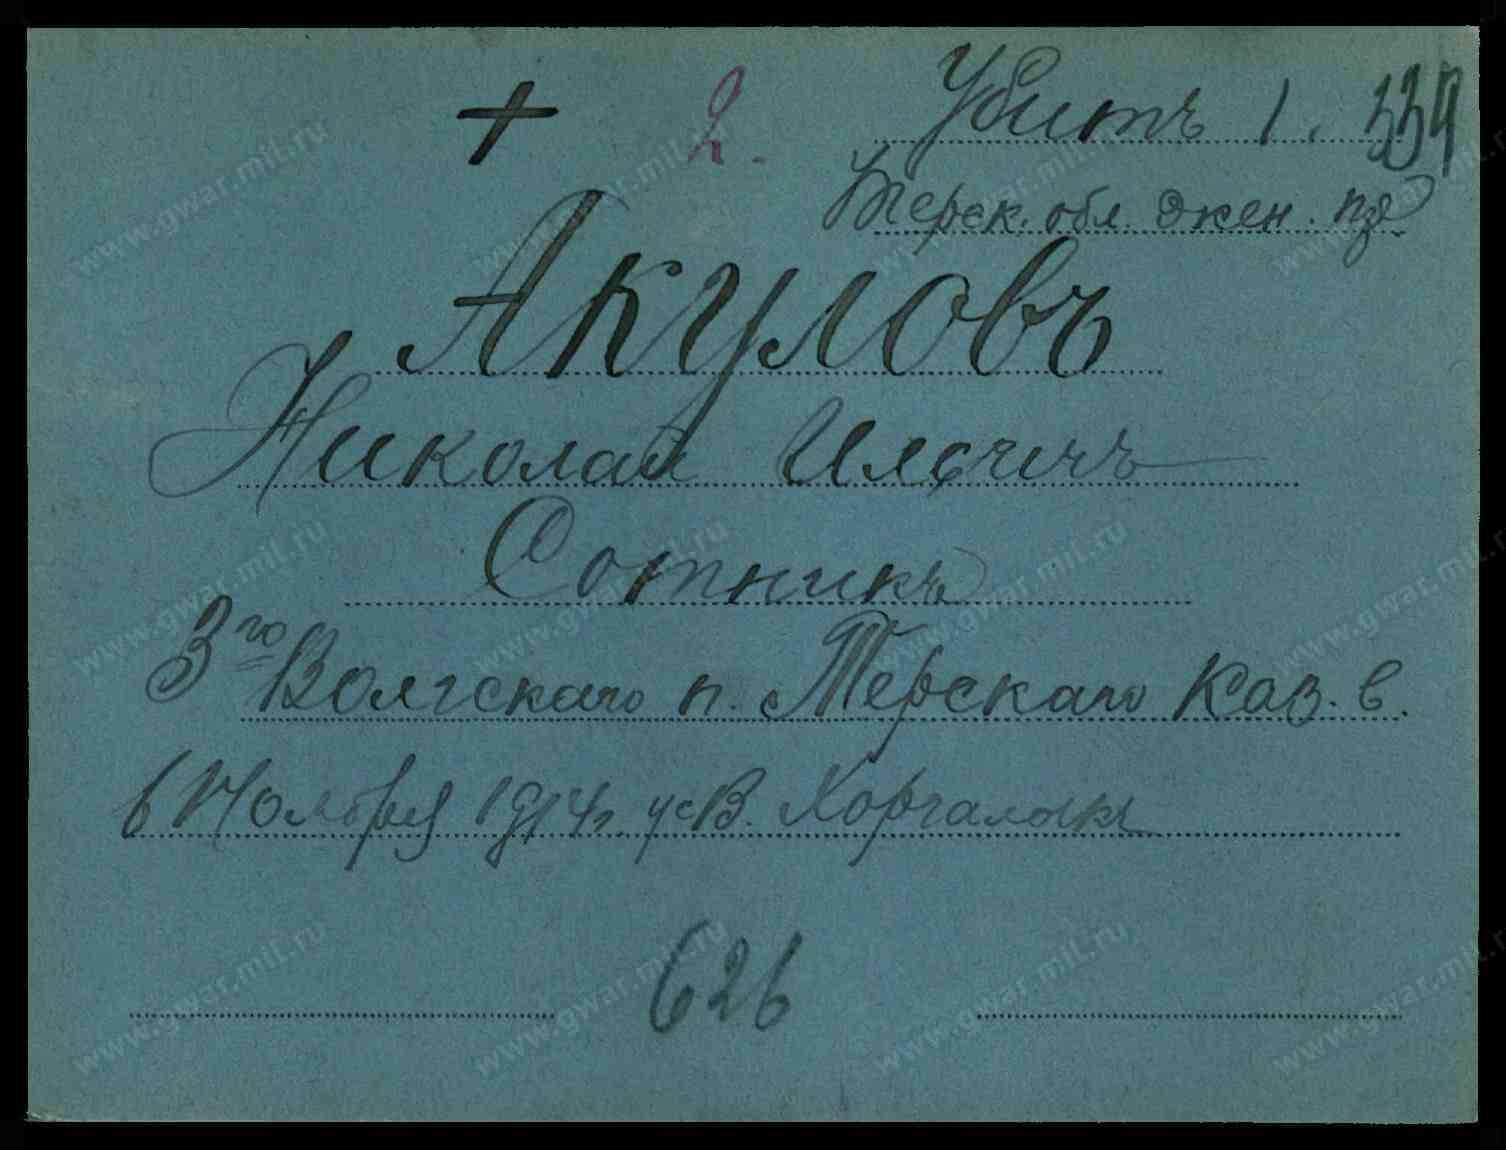 + 2. Убитъ 1. 334
Терск. обл. жен.
Акуловъ
Николай Ильичъ
Сотникъ
3го Волгскаго п. Терскаго каз. в.
6 Ноября 1914г. у с. В. Харгалыкъ
626
www.gwar.mil.ru